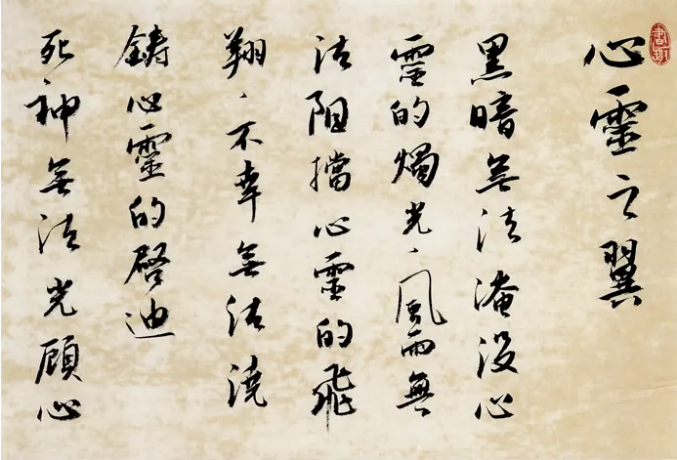 心靈之翼
黑暗無法淹没心
靈的燭光、風雨無
法阻擋心靈的飛
翔、不幸無法澆
鑄心靈的啓迪
死神無法光顧心